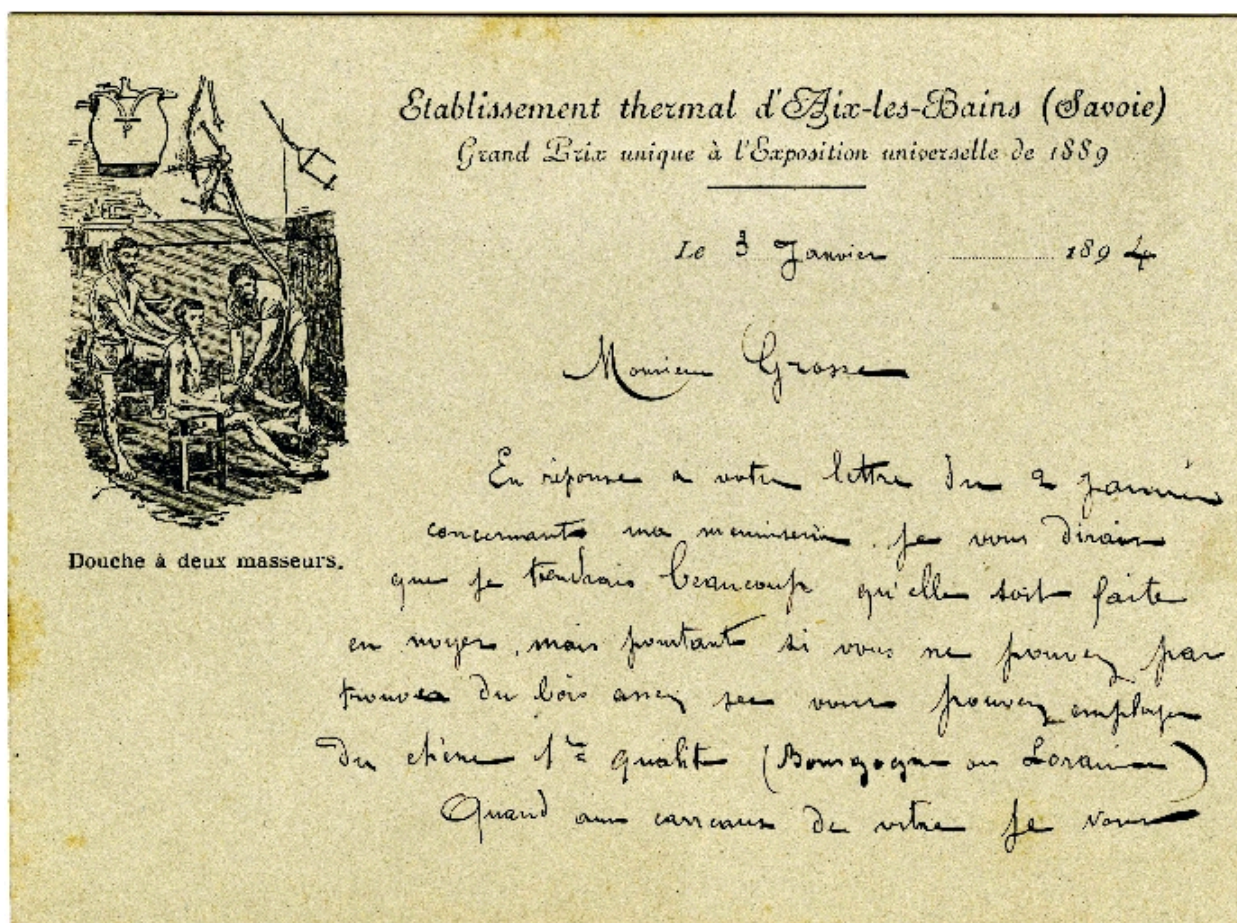 Etablissement thermal d'Aix-les-Bains (Savoie)
Grand Prix unique à l'Exposition universelle de 1889
Le 3 Janvier 1894
Monsieur Grosse
En réponse a votre lettre du 2 janvier
concernant ma menuiserie je vous dirais
que je tendrais beaucoup qu'elle soit faite
en noyer, mais pourtant si vous ne pouvez pas
trouver du bois assez sec vous pouvez employer
du chêne 1re qualité (Bourgogne ou Loraine)
Quand aux carreaux de vitre je vous
Douche à deux masseurs.